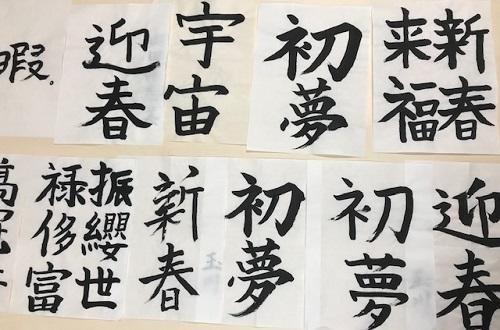 暇
迎春
宇宙
初夢
新春
来福
振纓世
禄侈富
新春
初夢
初夢
迎春